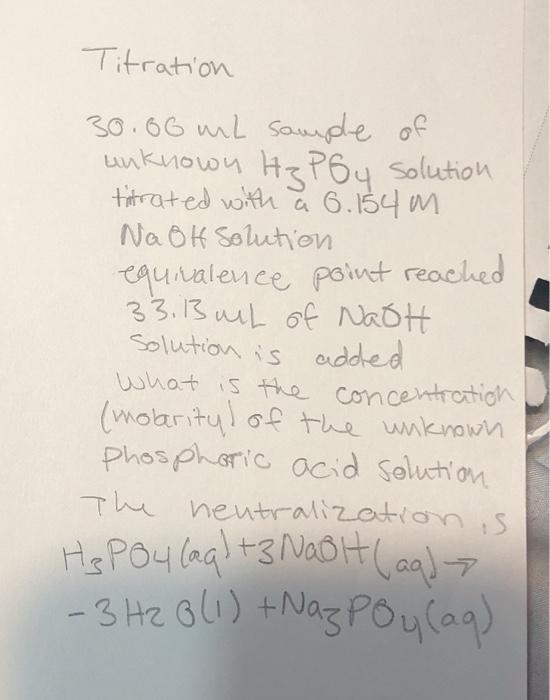 Titration
30.00 mL sample of
unknown H3PO4 solution
titrated with a 0.154 M
NaOH Solution
equivalence point reached
33.13 mL of NaOH
Solution is added
What is the concentration
(molarity) of the unknown
phosphoric acid solution
The neutralization is
H3PO4(aq) + 3NaOH(aq) →
- 3H2O(l) + Na3PO4(aq)